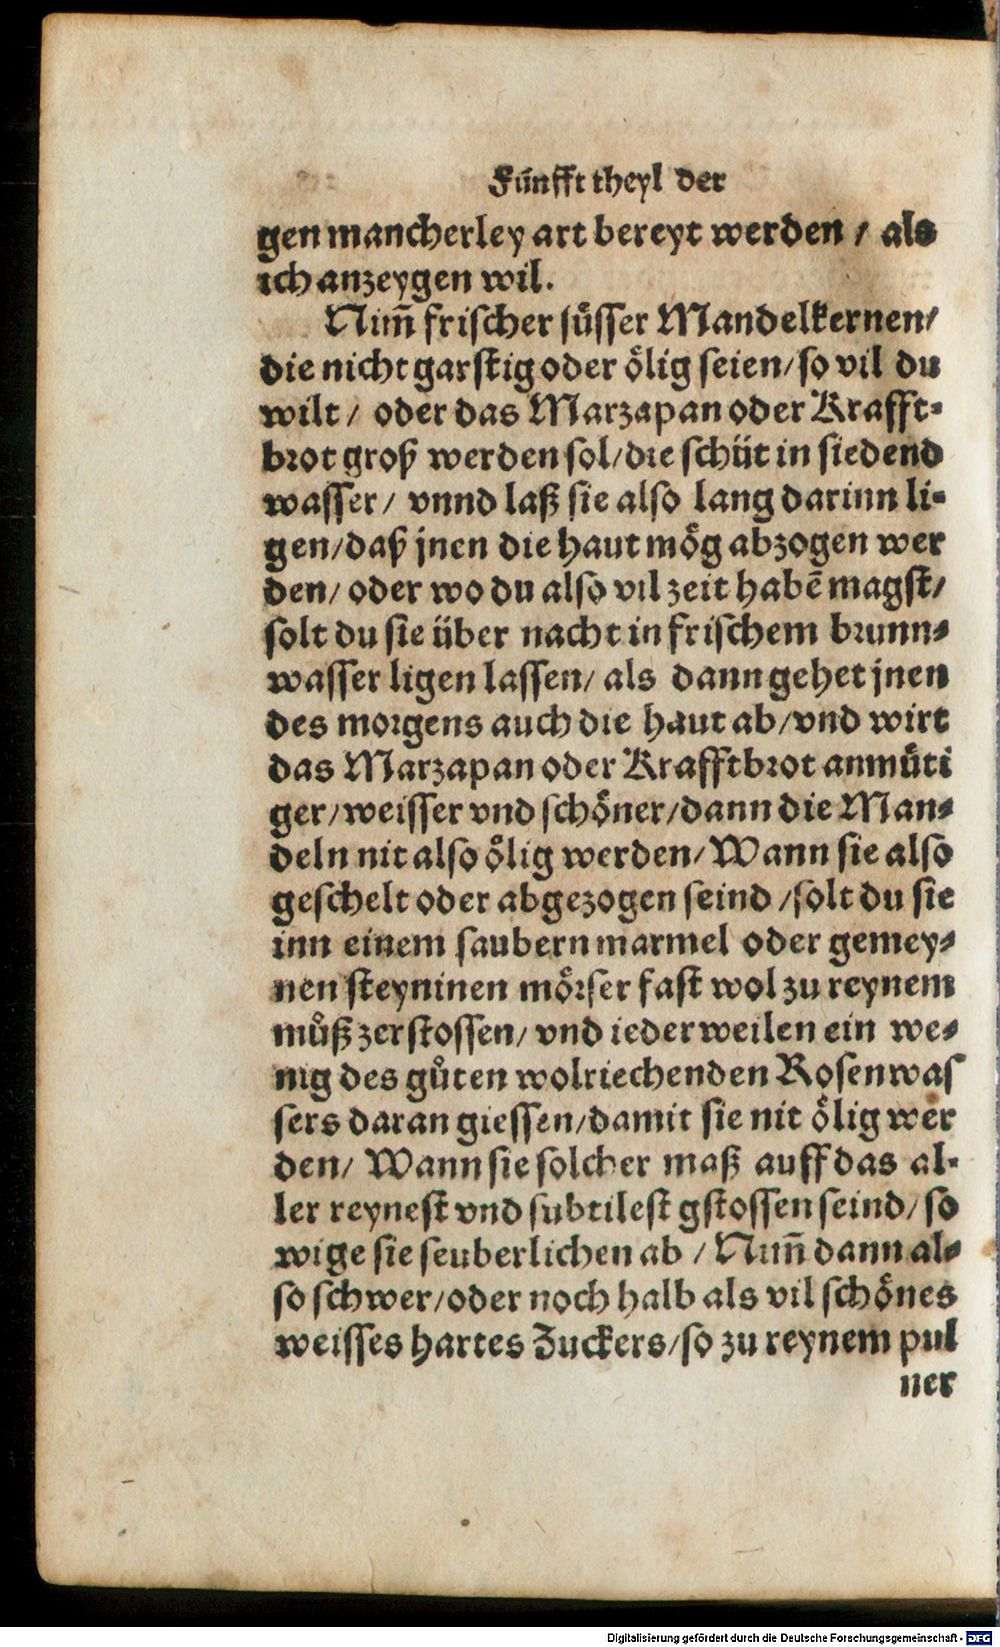 Fünfft theyl der
gen mancherley art bereyt werden / als
ich anzeygen wil.
Nim̃ frischer sůsser Mandelkernen/
die nicht garstig oder ôlig seien/so vil du
wilt/ oder das Marzapan oder Krafft-
brot groß werden sol/die schüt in siedend
wasser/ vnnd laß sie also lang darinn li-
gen/daß jnen die haut môg abzogen wer
den/ oder wo du also vil zeit habẽ magst/
solt du sie über nacht in frischem brunn-
wasser ligen lassen/ als dann gehet jnen
des morgens auch die haut ab/vnd wirt
das Marzapan oder Krafftbrot anmûti
ger/weisser vnd schôner/dann die Man-
deln nit also ôlig werden/Wann sie also
geschelt oder abgezogen seind /solt du sie
inn einem saubern marmel oder gemey-
nen steyninen môrser fast wol zu reynem
můß zerstossen/ vnd iederweilen ein we-
nig des gůten wolriechenden Rosenwas
sers daran giessen/damit sie nit ôlig wer
den/ Wann sie solcher maß auff das al-
ler reynest vnd subtilest gstossen seind/ so
wige sie seuberlichen ab / Nim̃ dann al-
so schwer/oder noch halb als vil schônes
weisses hartes Zuckers/so zu reynem pul
uer
Digitalisierung gefördert durch die Deutsche Forschungsgemeinschaft - DFG